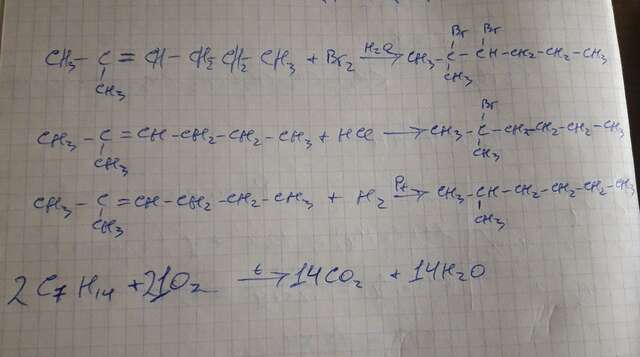 Br Br
CH₃ - C = CH - CH₂ CH₂ CH₃ + Br₂ H₂O → CH₃ - C - CH - CH₂ - CH₂ - CH₃
CH₃ CH₃
Br
CH₃ - C = CH - CH₂ - CH₂ - CH₃ + HCl → CH₃ - C - CH₂ - CH₂ - CH₂ - CH₃
CH₃ CH₃
CH₃ - C = CH - CH₂ - CH₂ - CH₃ + H₂ Pt → CH₃ - CH - CH₂ - CH₂ - CH₂ - CH₃
CH₃ CH₃
2 C₇H₁₄ + 21O₂ t → 14CO₂ + 14H₂O